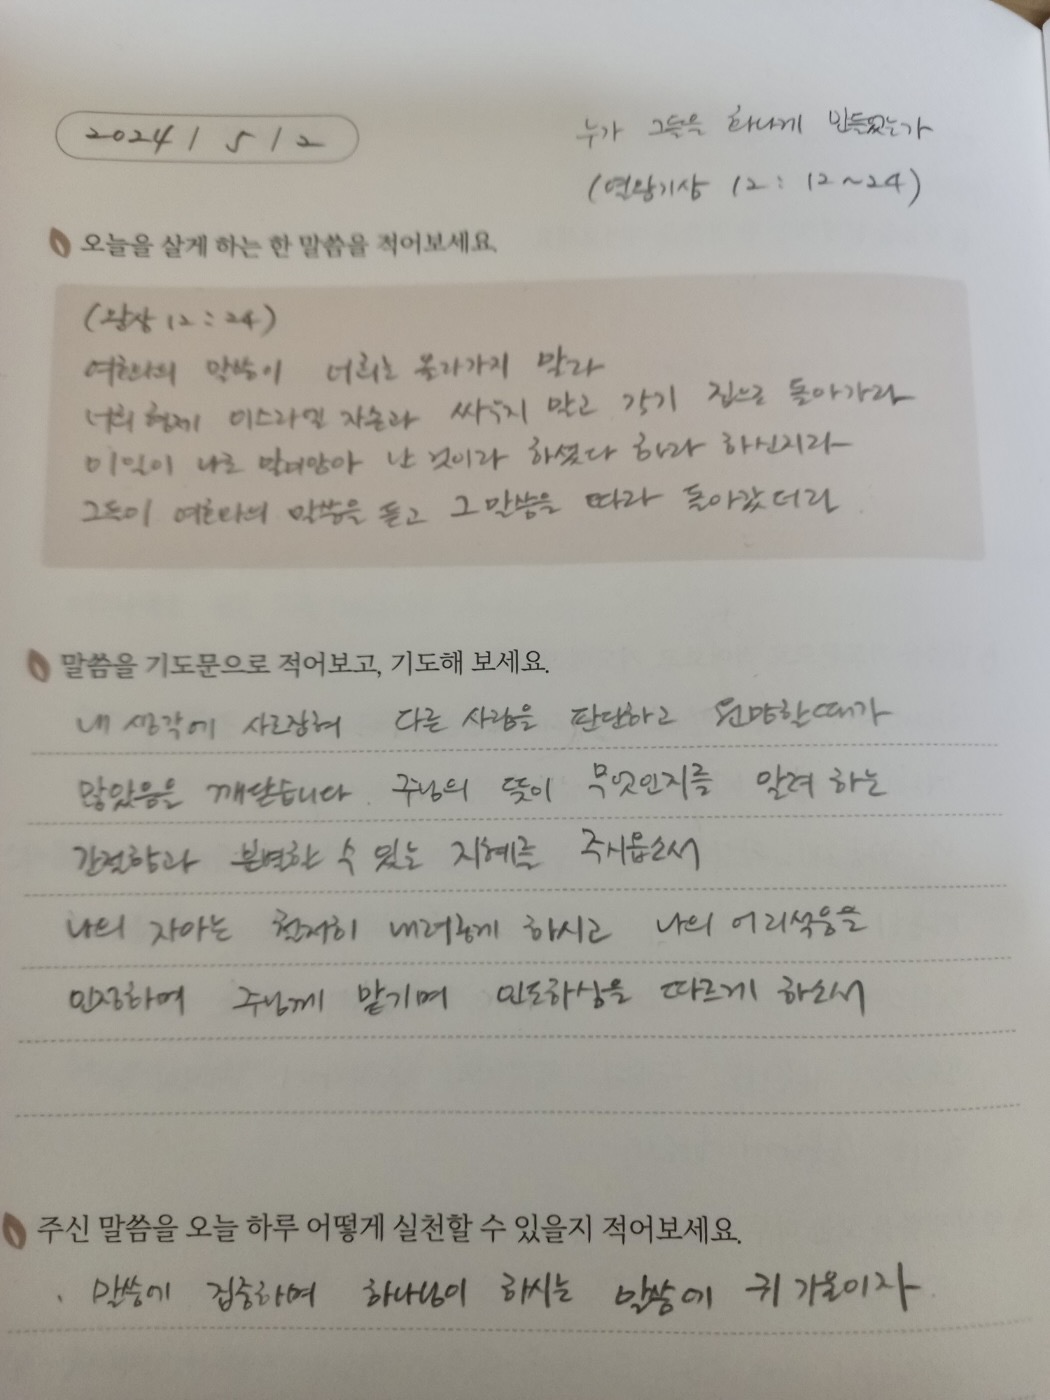 2024 / 5 / 2
누가 그들을 하나게 만들었는가
(열왕기상 12 : 12~24)
오늘을 살게 하는 한 말씀을 적어보세요.
(왕상 12 : 24)
여호와의 말씀이 너희는 올라가지 말라
너희 형제 이스라엘 자손과 싸우지 말고 각기 집으로 돌아가라
이 일이 나로 말미암아 난 것이라 하셨다 하라 하신지라
그들이 여호와의 말씀을 듣고 그 말씀을 따라 돌아갔더라
말씀을 기도문으로 적어보고, 기도해 보세요.
내 생각에 사로잡혀 다른 사람을 판단하고 원망한 때가
많았음을 깨닫습니다. 주님의 뜻이 무엇인지를 알려 하는
간절함과 분별할 수 있는 지혜를 주시옵소서
나의 자아는 철저히 내려놓게 하시고 나의 어리석음을
인정하여 주님께 맡기며 인도하심을 따르게 하소서
주신 말씀을 오늘 하루 어떻게 실천할 수 있을지 적어보세요.
. 말씀에 집중하여 하나님이 하시는 말씀에 귀 기울이자.